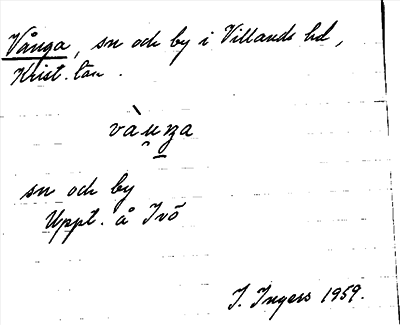 Vånga, sn och by i Villands hd,
Krist. län.
vàu̯ŋa
sn och by
Uppt. å Ivö
I. Ingers 1959.